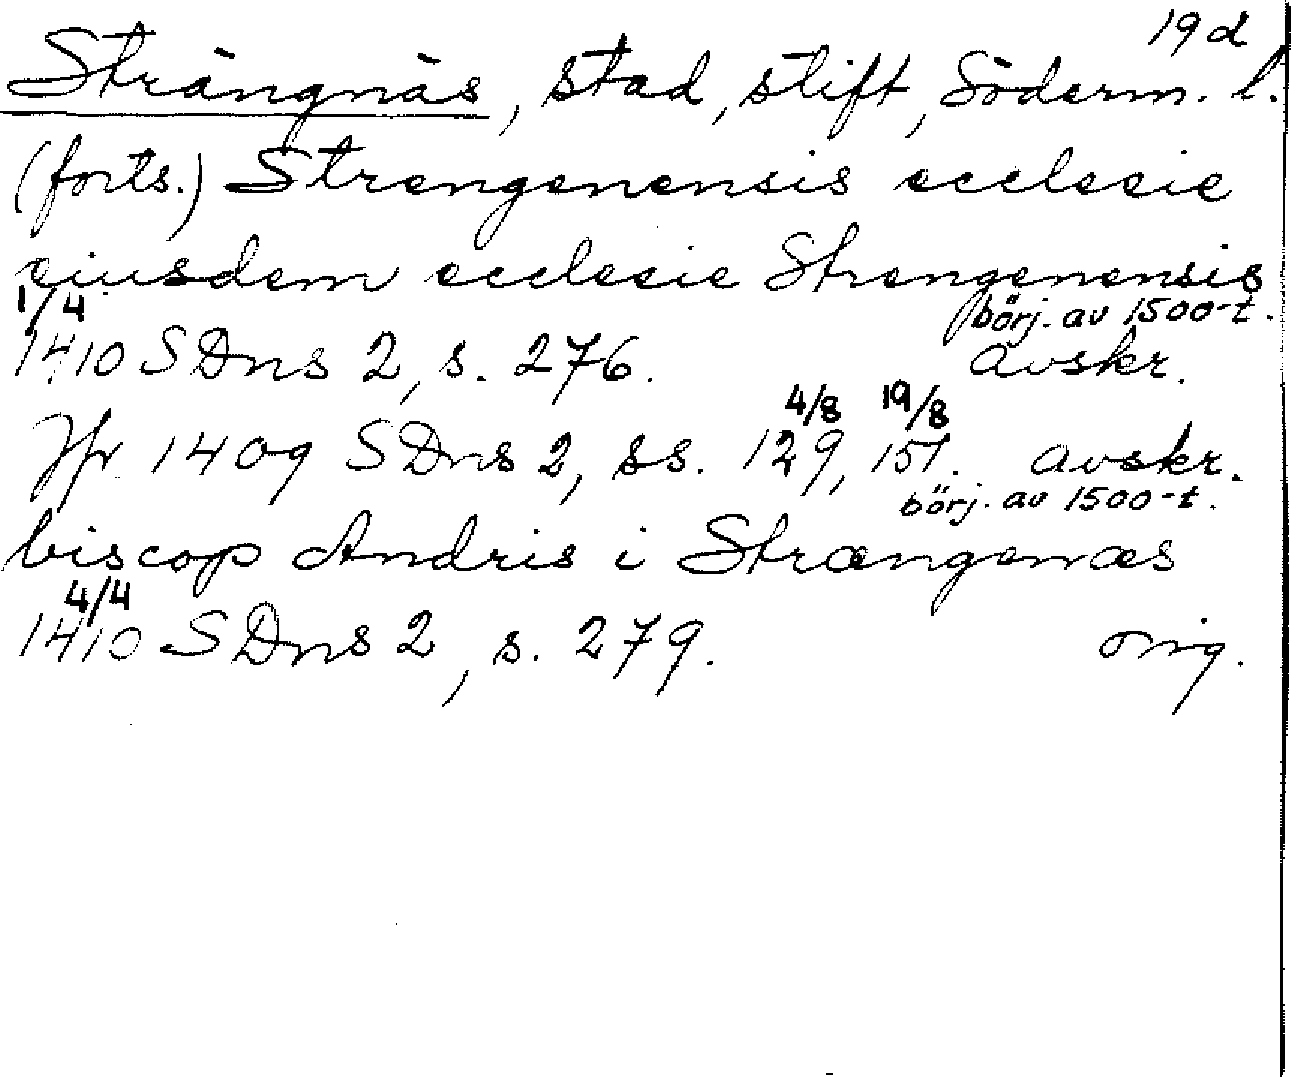 19d
Strängnäs, stad, stift, Söderm. l.
(forts.) Strengenensis ecclesie
eiusdem ecclesie Strengenensis
1/4 börj. av 1500-t.
1410 SDns 2, s. 276. avskr.
4/8 19/8
Jfr 1409 SDns 2, ss. 129, 151. avskr.
börj. av 1500-t.
biscop Andris i Strængenæs
4/4
1410 SDns 2, s. 279. orig.